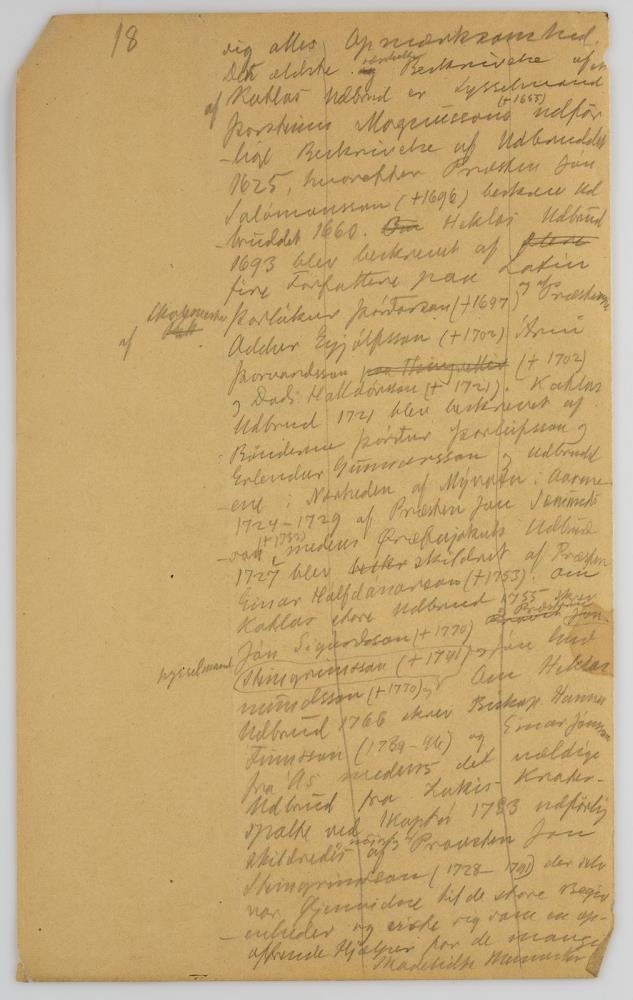 18
sig alles Opmærksomhed.
Den ældste Beskrivelse af et
af Katlas Udbrud er Sysselmand
Þorsteinn Magnússons (+1655) udfør-
-lige Beskrivelse af Udbruddet
1625, hvorefter Præsten Jón
Salómonsson (+1696) beskrev Ud
-bruddet 1660. Om Heklas Udbrud
1693 blev beskrevet af flere
fire Forfattere paa Latin
Þorlákur Þórðarson (+1697) og af Præsterne
af
Oddur Eyjólfsson (+1702) Árni
Þorvardsson (+1702)
og Dadi Halldórsson (+1721). Katlas
Udbrud 1721 blev beskrevet af
Bönderne Þórður Þorleifsson og
Erlendur Gunnarsson og Udbrudd
-ene i Nærheden af Mývatn i Aarene
1724-1729 af Præsten Jón Sæmunds
-son (+1733), medens Öræfajökuls Udbrud
1727 blev skildret af Præsten
Einar Hálfdánarson (+1753). Om
Katlas store Udbrud 1755 skrev
Jón Sigurdsson (+1770) Jón
sysselmand
Steingrimsson (+1791) og Jón Gud
mundsson (+1770). Om Heklas
Udbrud 1766 skrev Biskop Hannes
Finnsson (1739-96) og Einar Jónsson
fra Ás medens det vældige
Udbrud fra Lakis Krater-
spalte ved Kaptö 1783 udførlig
skildredes af Provsten Jón
Steingrimsson (1728-1791) der selv
var Øjenvidne til de store Begiv
-enheder og viste sig som en op-
ofrende Hjælper for de mange
skadelidte Mennesker